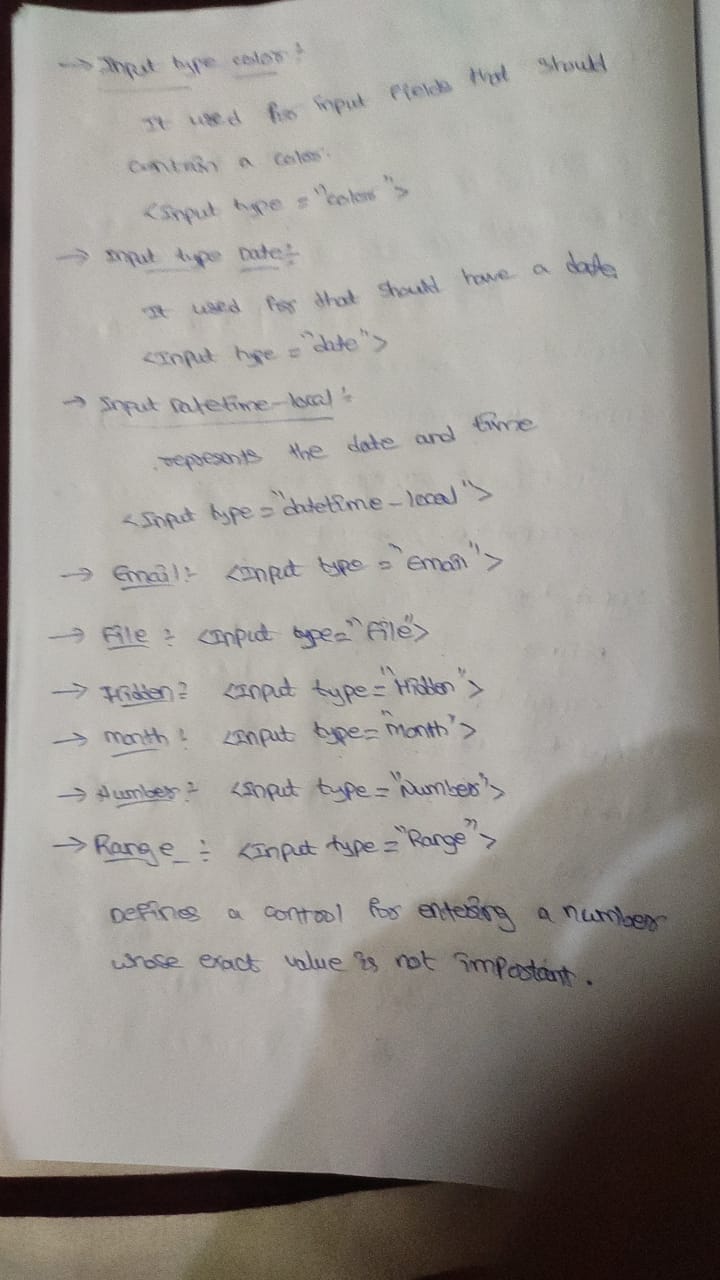 → Input type color :-
It used for input fields that should
contain a color.
<Input type = "color">
→ Input type Date :-
It used for that should have a date
<Input type = "date">
→ Input Datetime-local :-
represents the date and time
<Input type = "datetime-local">
→ Email :- <Input type = "Email">
→ File : <Input type="File">
→ Hidden : <Input type = "Hidden">
→ month : <Input type= "month">
→ Number :- <Input type = "Number">
→ Range :- <Input type = "Range">
Defines a control for entering a number
whose exact value is not important.